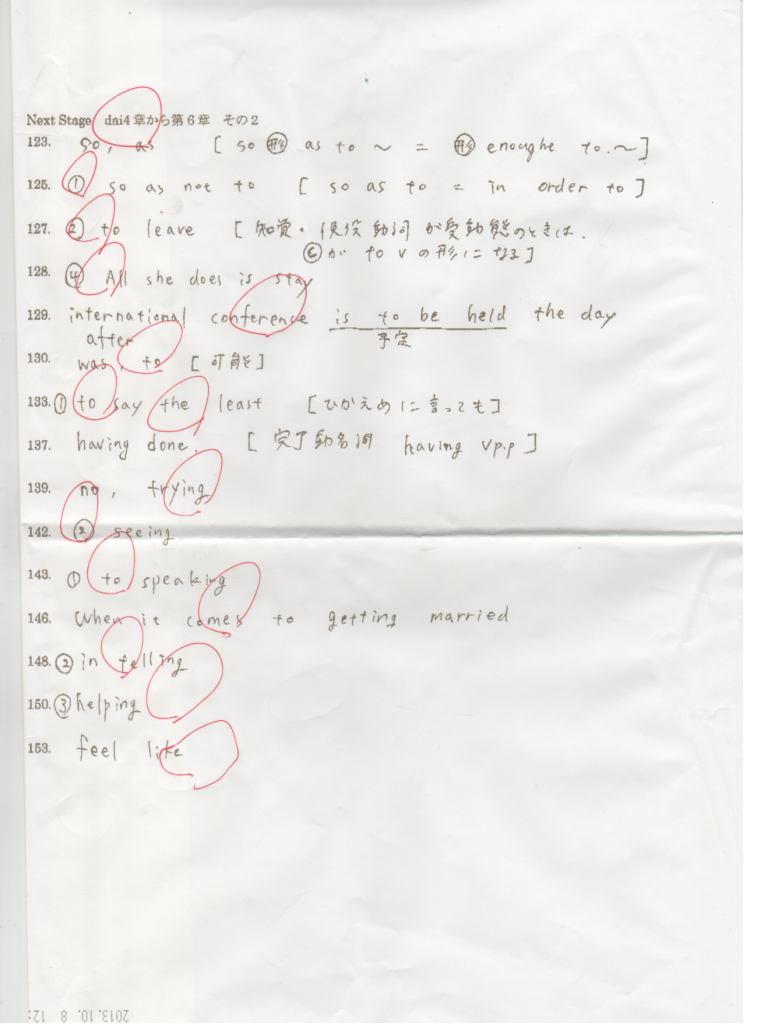 Next Stage dai4 章から第６章 その２
123. so, as [ so 形 as to ～ = 形 enoughe to.～]
125. ① so as not to [ so as to = in order to ]
127. ② to leave [ 知覚・使役動詞が受動態のときは.
Ⓒが to v の形になる]
128. ④ All she does is stay
129. international conference is to be held the day
after
予定
130. was, to [可能を]
133. ① to say the least [ひかえめに言っても]
137. having done. [ 完了動名詞 having vp.p ]
139. no, trying
142. ② seeing
143. ① to speaking
146. When it comes to getting married
148. ② in telling
150. ③ helping
153. feel like
2013.10. 8 12: